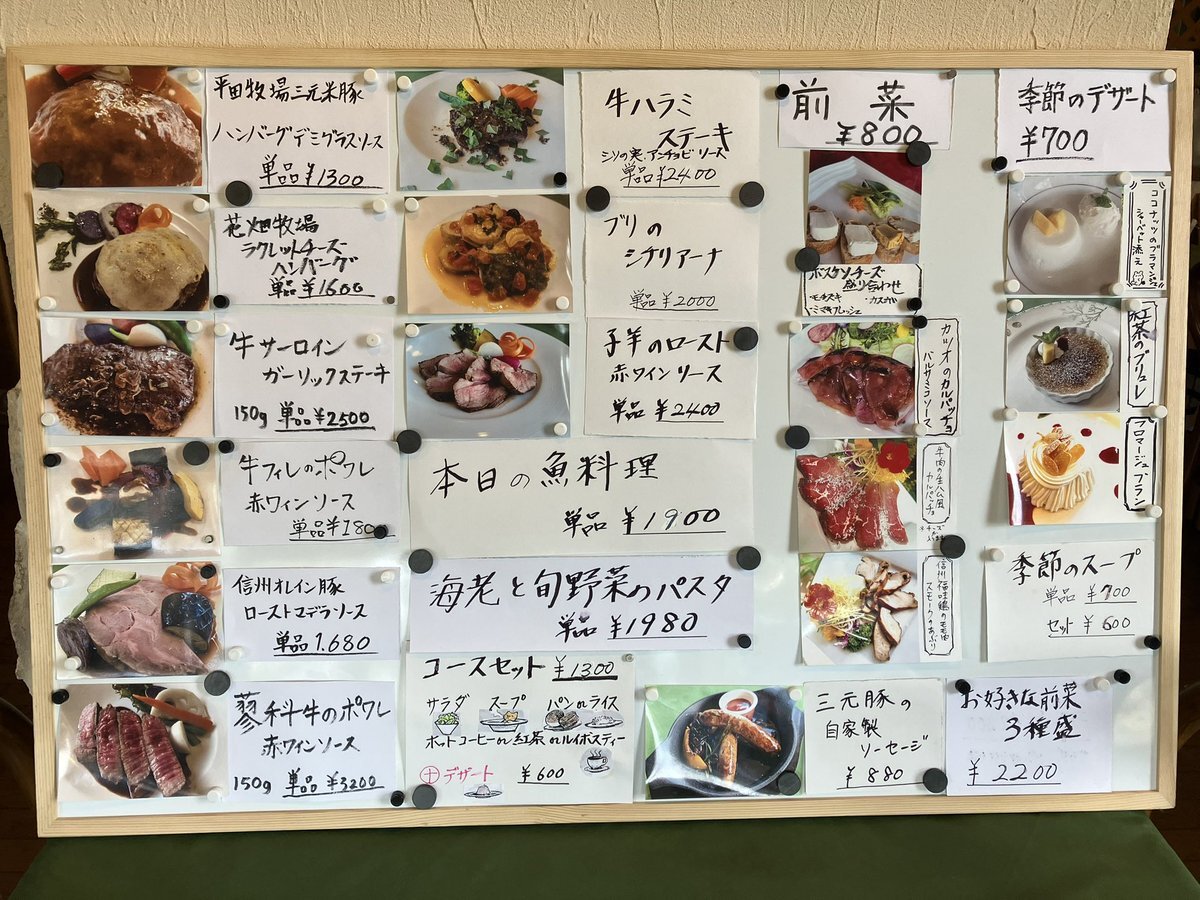 平田牧場三元米豚
ハンバーグデミグラスソース
単品¥1300
花畑牧場
ラクレットチーズ
ハンバーグ
単品¥1600
牛サーロイン
ガーリックステーキ
150g 単品¥2500
牛フィレのポワレ
赤ワインソース
単品¥180
信州オレイン豚
ローストマデラソース
単品1.680
蓼科牛のポワレ
赤ワインソース
150g 単品¥3200
牛ハラミ
ステーキ
シソの実、アンチョビソース
単品¥2400
ブリの
シチリアーナ
単品¥2000
子羊のロースト
赤ワインソース
単品¥2400
本日の魚料理
単品¥1900
海老と旬野菜のパスタ
単品¥1980
コースセット ¥1300
サラダ スープ パンorライス
ホットコーヒーor紅茶orルイボスティー
⊕デザート ¥600
三元豚の
自家製
ソーセージ
¥880
前菜
¥800
ボスケソチーズ
盛り合わせ
モチヅキ カスガ
ミマキフレッシュ
カツオのカルパッチョ
バルサミコソース
牛肉の生ハム風
カルパッチョ
信州福味鶏のモモ肉
スモークのあぶり
お好きな前菜
3種盛
¥2200
季節のデザート
¥700
ココナッツのブラマンジェ
シャーベット添え
紅茶のブリュレ
フロマージュブラン
季節のスープ
単品¥700
セット¥600